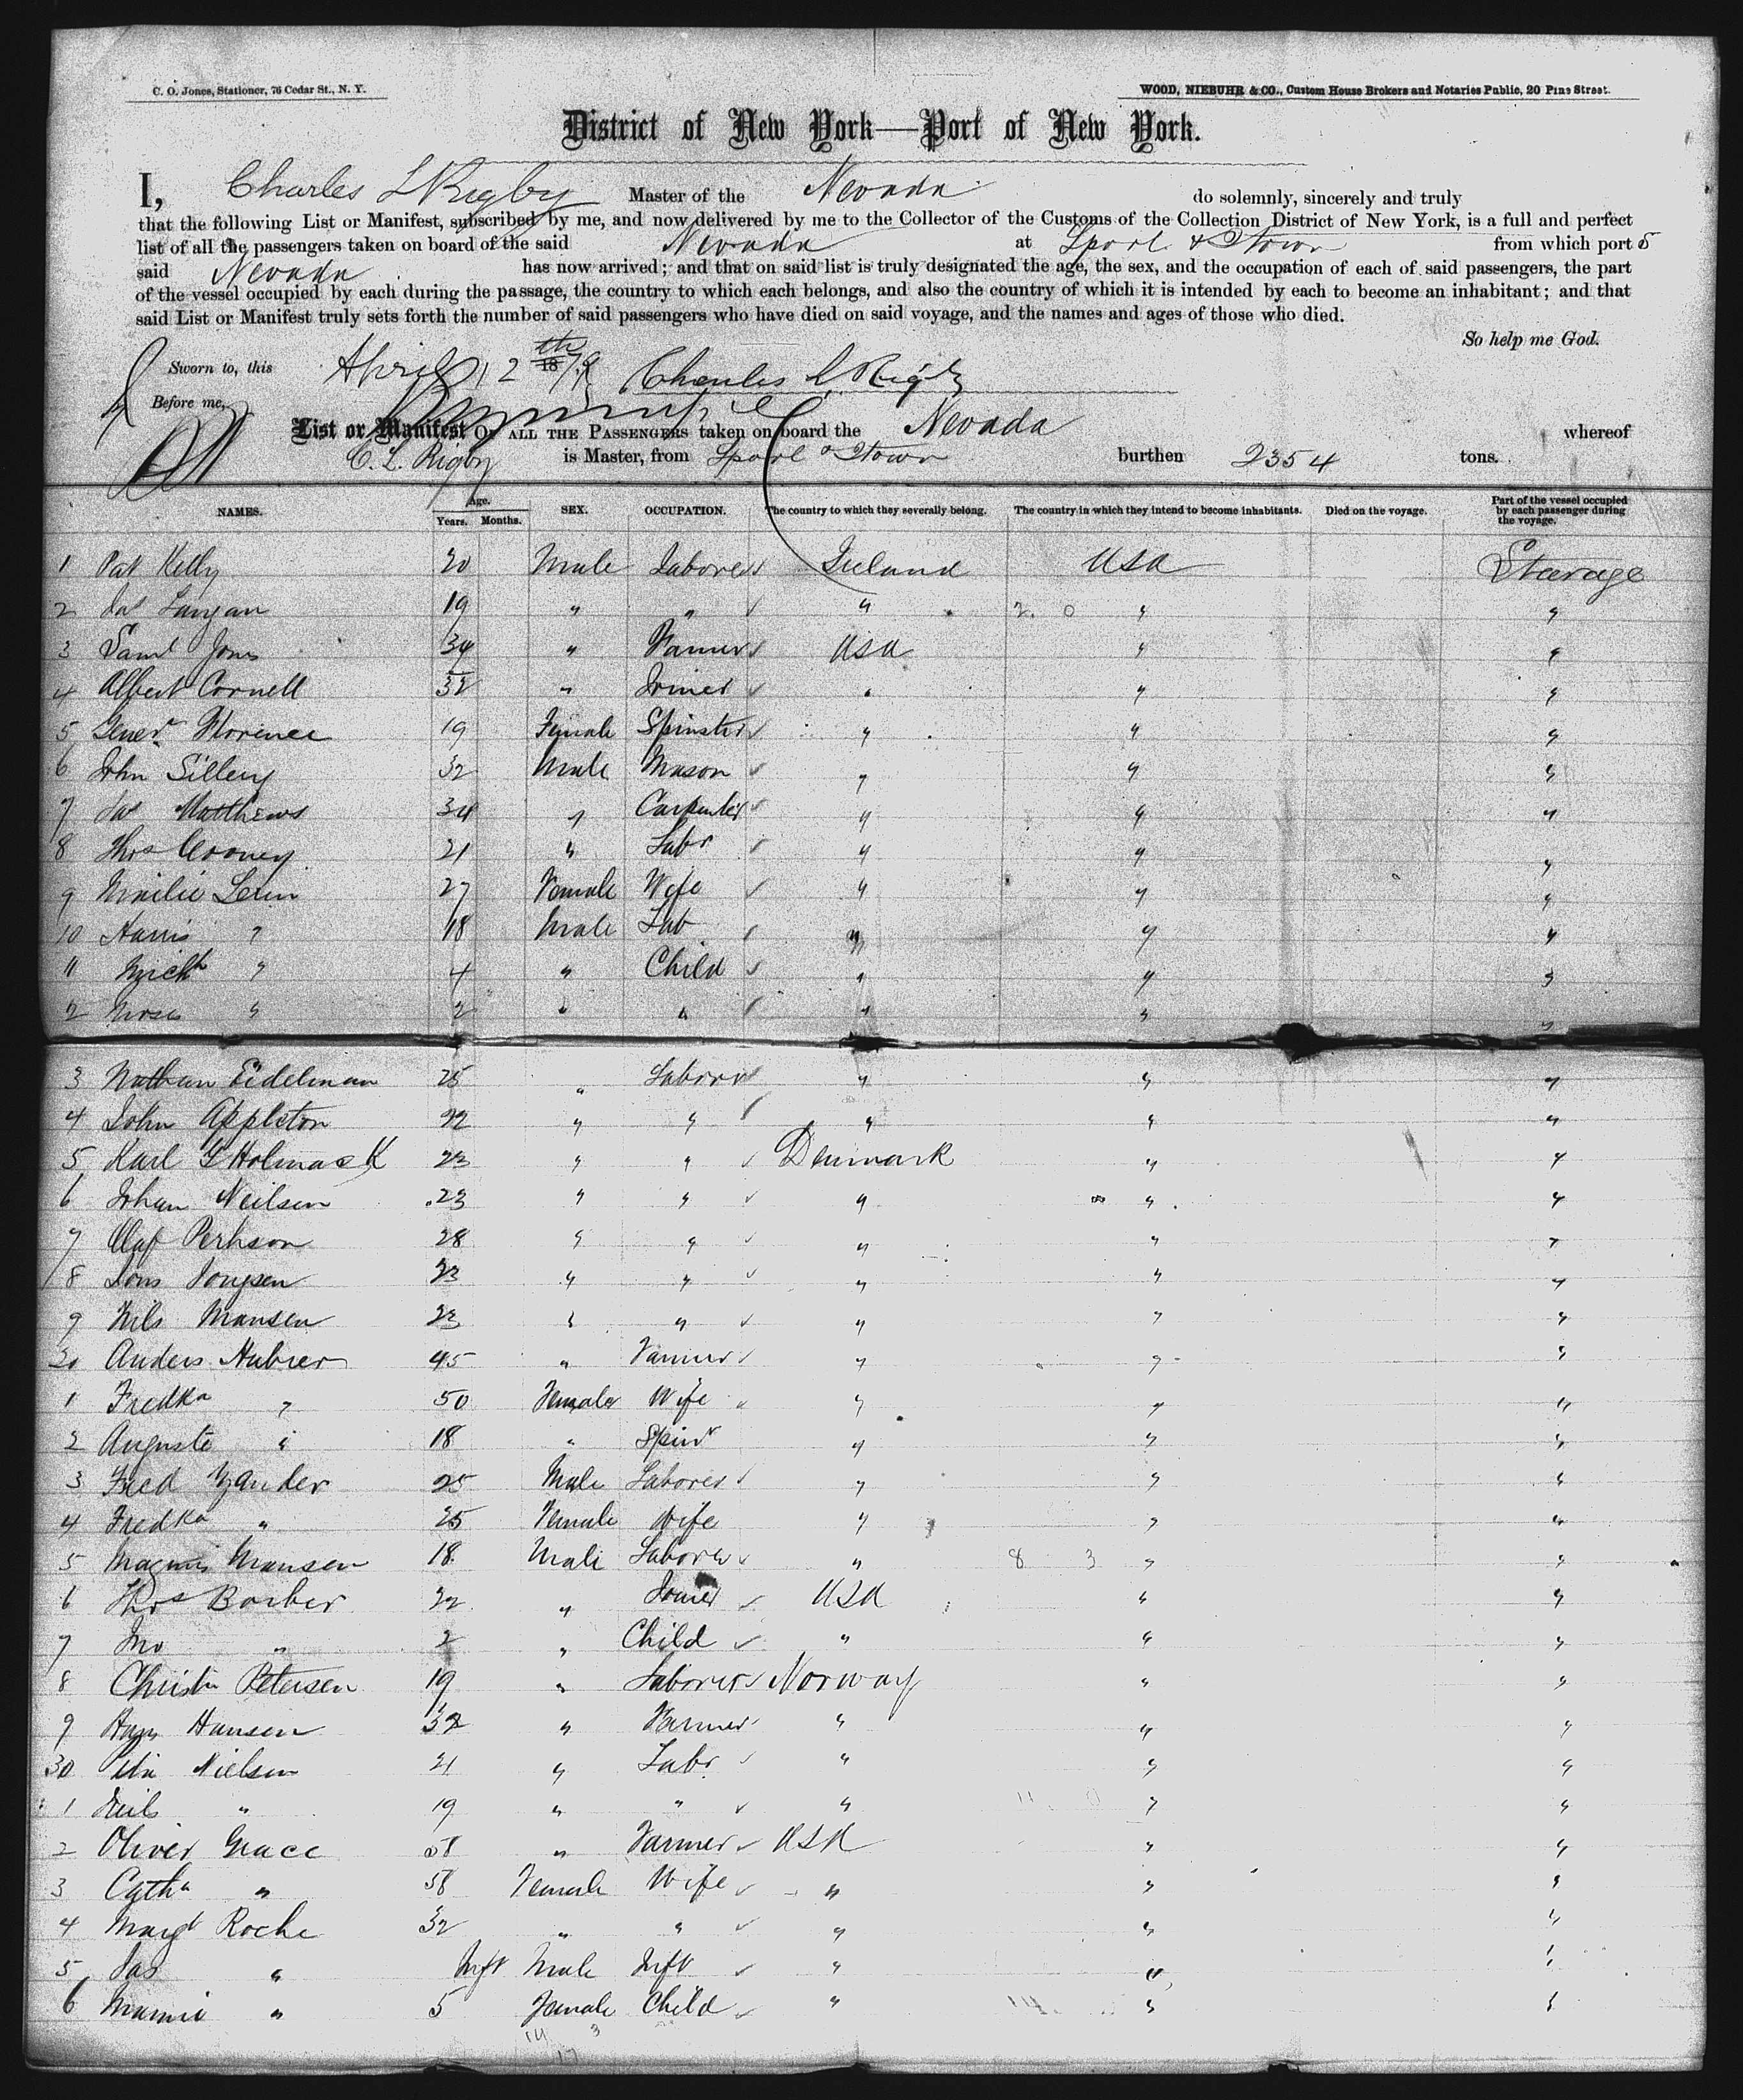 C. O. Jones, Stationer, 76 Cedar St., N. Y.
WOOD, NIEBUHR & CO., Custom House Brokers and Notaries Public, 20 Pine Street.
District of New York—Port of New York.
I, Charles L Rigby Master of the Nevada do solemnly, sincerely and truly
that the following List or Manifest, subscribed by me, and now delivered by me to the Collector of the Customs of the Collection District of New York, is a full and perfect
list of all the passengers taken on board of the said Nevada at Lpool & Qtown from which port s
said Nevada has now arrived; and that on said list is truly designated the age, the sex, and the occupation of each of said passengers, the part
of the vessel occupied by each during the passage, the country to which each belongs, and also the country of which it is intended by each to become an inhabitant; and that
said List or Manifest truly sets forth the number of said passengers who have died on said voyage, and the names and ages of those who died.
So help me God.
Sworn to, this April 12th 1879 Charles L Rigby
Before me,
List or Manifest OF ALL THE PASSENGERS taken on board the Nevada whereof
C. L. Rigby is Master, from Lpool & Qtown burthen 2354 tons.
NAMES. Age. Years. Months. SEX. OCCUPATION. The country to which they severally belong. The country in which they intend to become inhabitants. Died on the voyage. Part of the vessel occupied by each passenger during the voyage.
1 Pat Kelly 20 Male Laborer Ireland USA Steerage
2 Jas Langan 19 " " " " "
3 Saml Jones 34 " Farmer USA " "
4 Albert Cornell 32 " Joiner " " "
5 Genev. Florence 19 Female Spinster " " "
6 John Sillery 32 Male Mason " " "
7 Jas Matthews 34 " Carpenter " " "
8 Thos Cooney 21 " Labr " " "
9 Levin 27 Female Wife " " "
10 Harris " 18 Male Lab " " "
11 Mich " 4 " Child " " "
2 Moses " 2 " " " " "
3 Nathan Eidelman 25 " Laborer " " "
4 John Appleton 22 " " " " "
5 Karl G Holmack 23 " " Denmark " "
6 Johan Neilsen 23 " " " " "
7 Olaf Perhson 28 " " " " "
8 23 " " " " "
9 Nils Mansen 23 " " " " "
20 Anders Hubner 45 " Farmer " " "
1 Fredka " 50 Female Wife " " "
2 Auguste " 18 " Spinr " " "
3 Fred Zander 25 Male Laborer " " "
4 Fredka " 25 Female Wife " " "
5 Magnus Mansen 18 Male Laborer " 8 3 " "
6 Thos Barber 22 " Joiner USA " "
7 Jno " 2 " Child " " "
8 Christn Petersen 19 " Laborer Norway " "
9 Hans Hansen 32 " Farmer " " "
30 Nielsen 21 " Labr " " "
1 Neils " 19 " " " " "
2 Oliver Grace 58 " Farmer USA " "
3 Cath " 58 Female Wife " " "
4 Margt Roche 32 " " " " "
5 Jas " Inft Male Inft " " "
6 Mamie " 5 Female Child " " "
14 3
17